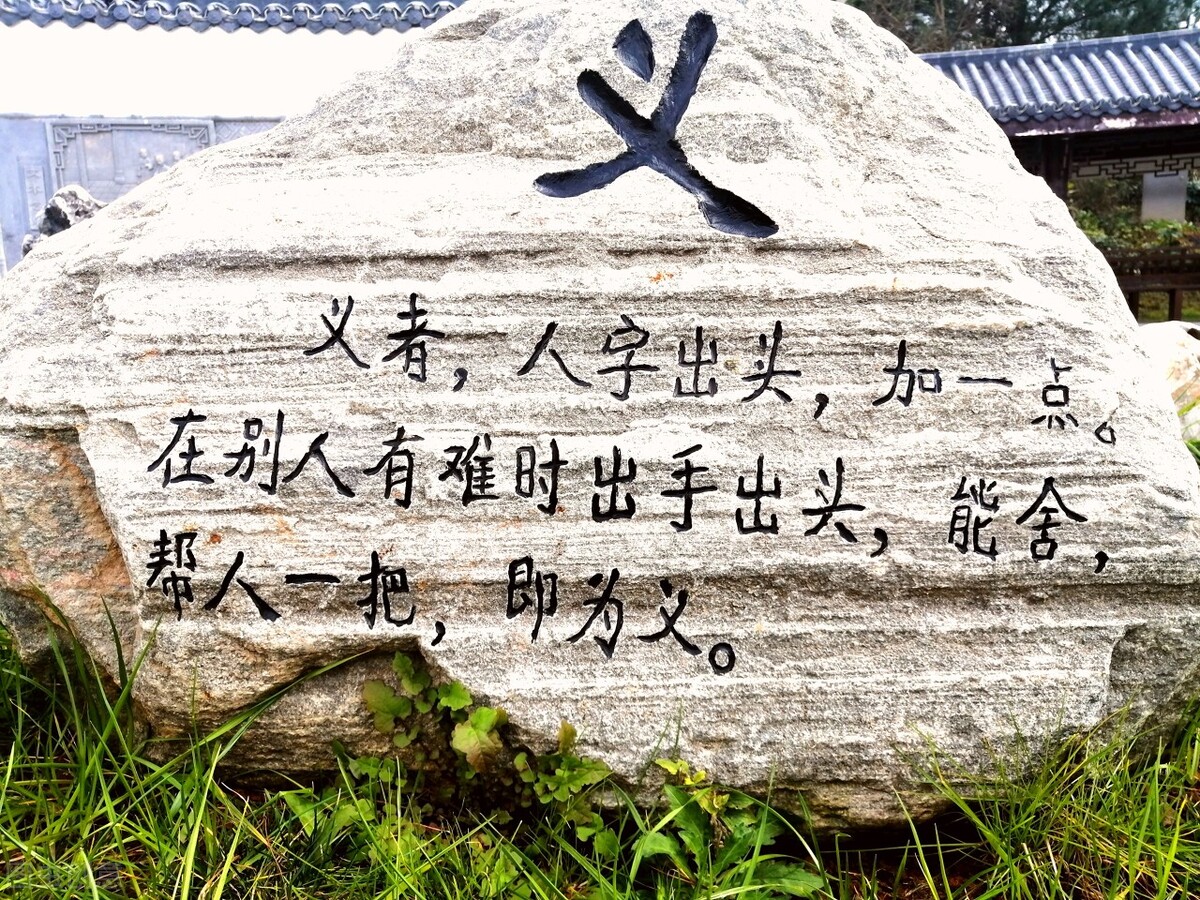 义
义者，人字出头，加一点。
在别人有难时出手出头，能舍，
帮人一把，即为义。